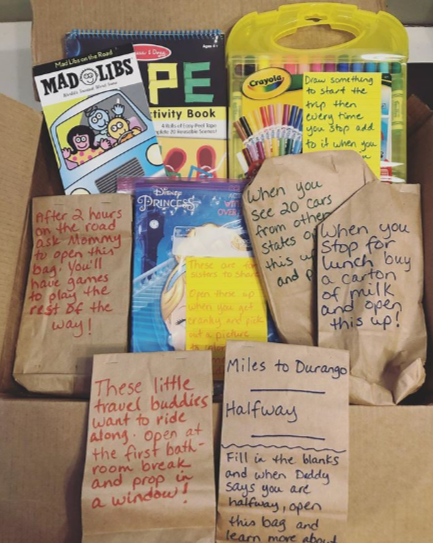 Mad Libs on the Road
MAD LIBS
World's Greatest Word Game
Melissa & Doug
Ages 4+
PE
ctivity Book
Crayola
Draw something
to start the
trip then
every time
you stop add
to it when you
After 2 hours
on the road
ask Mommy
to open this
bag. You'll
have games
to play the
rest of the
way!
Disney
PRINCESS
These are for
sisters to share
Open these
when you get
cranky and pick
out a picture
When you
see 20 cars
from other
states o
this u
and p
When you
stop for
lunch buy
a carton
of milk
and open
this up!
These little
travel buddies
want to ride
along. Open at
the first bath-
room break
and prop in
a window!
Miles to Durango
Halfway
Fill in the blanks
and when Daddy
says you are
halfway, open
this bag and
learn more about